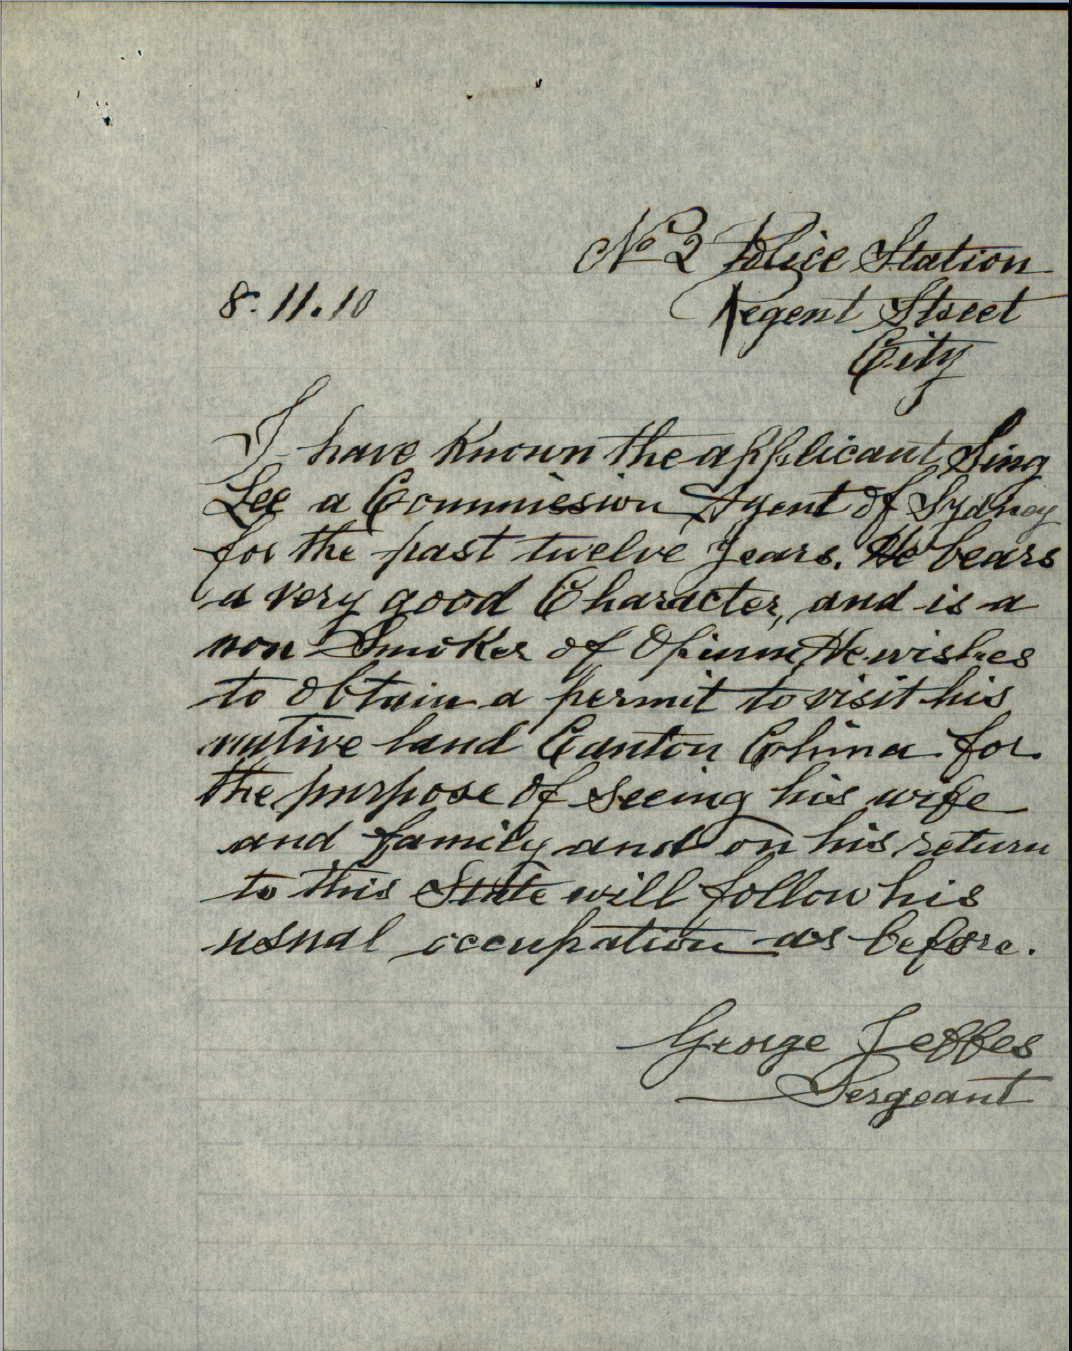 No 2 Police Station
8.11.10
Regent Street
City
I have known the applicant Sing
Lee a Commission Agent of Sydney
for the past twelve years. He bears
a very good Character, and is a
non Smoker of Opium, He wishes
to obtain a permit to visit his
native land Canton China for
the purpose of seeing his wife
and family and on his return
to this State will follow his
usual occupation as before.
George Jeffes
Sergeant